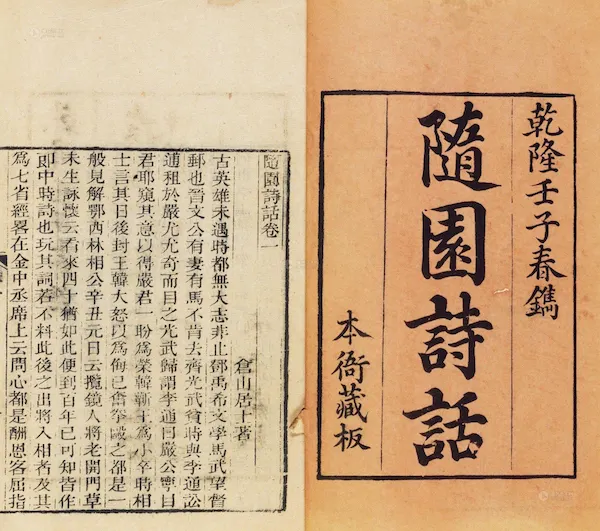 乾隆壬子春鐫
隨園詩話
本衙藏板
隨園詩話卷一
倉山居士著
古英雄未遇時都無大志非止鄧禹希文學馬武望督
郵也晉文公有妻有馬不肯去齊光武貧時與李通訟
逋租於嚴尤尤奇而目之光武歸謂李通曰嚴公寧目
君耶窺其意以得嚴君一盼爲榮韓蘄王爲小卒時相
士言其日後封王韓大怒以爲侮己奮拳毆之都是一
般見解鄂西林相公辛丑元日云攬鏡人將老開門草
未生詠懷云看來四十猶如此便到百年已可知皆作
郎中時詩也玩其詞若不料此後之出將入相者及其
爲七省經畧在金中丞席上云問心都是酬恩客屈指